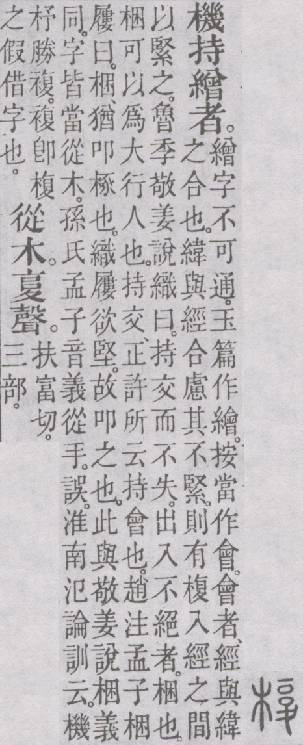 椱
機持繒者。
繒字不可通。玉篇作繪。按當作會。會者、經與緯
之合也。緯與經合慮其不緊。則有椱入經之間
以緊之。魯季敬姜說織曰。持交而不失。出入不絕者。梱也。
梱可以爲大行人也。持交、正許所云持會也。趙注孟子梱
屨曰。梱、猶叩椓也。織屨欲堅。故叩之也。此與敬姜說梱義
同。字皆當從木。孫氏孟子音義從手。誤。淮南氾論訓云。機
杼勝複。複卽椱
之假借字也。
從木。复聲。
扶富切。
三部。